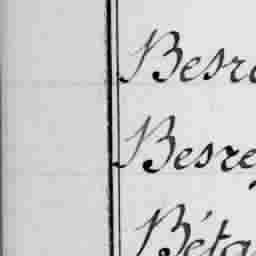 Besre
Besrey
Béta